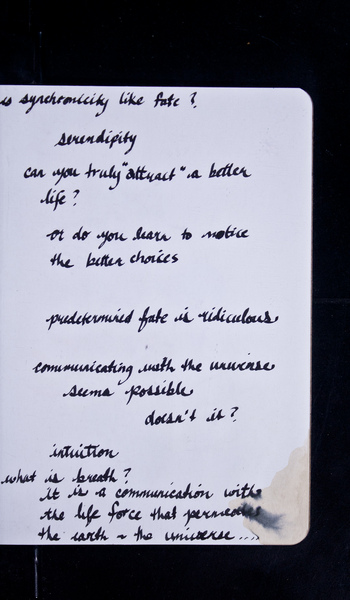 is synchronicity like fate ?
serendipity
can you truly "attract" a better
life ?
or do you learn to notice
the better choices
predetermined fate is ridiculous
communicating with the universe
seems possible
doesn't it ?
intuition
what is breath ?
it is a communication with
the life force that permeates
the earth ~ the universe....